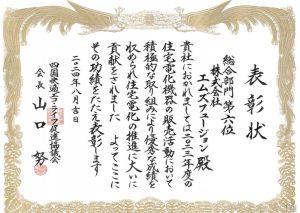 表彰状
総合部門 第六位
株式会社
エムズフュージョン 殿
貴社におかれましては二〇二三年度の
住宅電化機器の販売活動において
積極的な取り組みにより優秀な成績を
収められ住宅電化の推進に大いに
貢献をされました よってここに
その功績をたたえ表彰します
二〇二四年八月吉日
四国快適エコライフ促進協議会
会長 山口 努